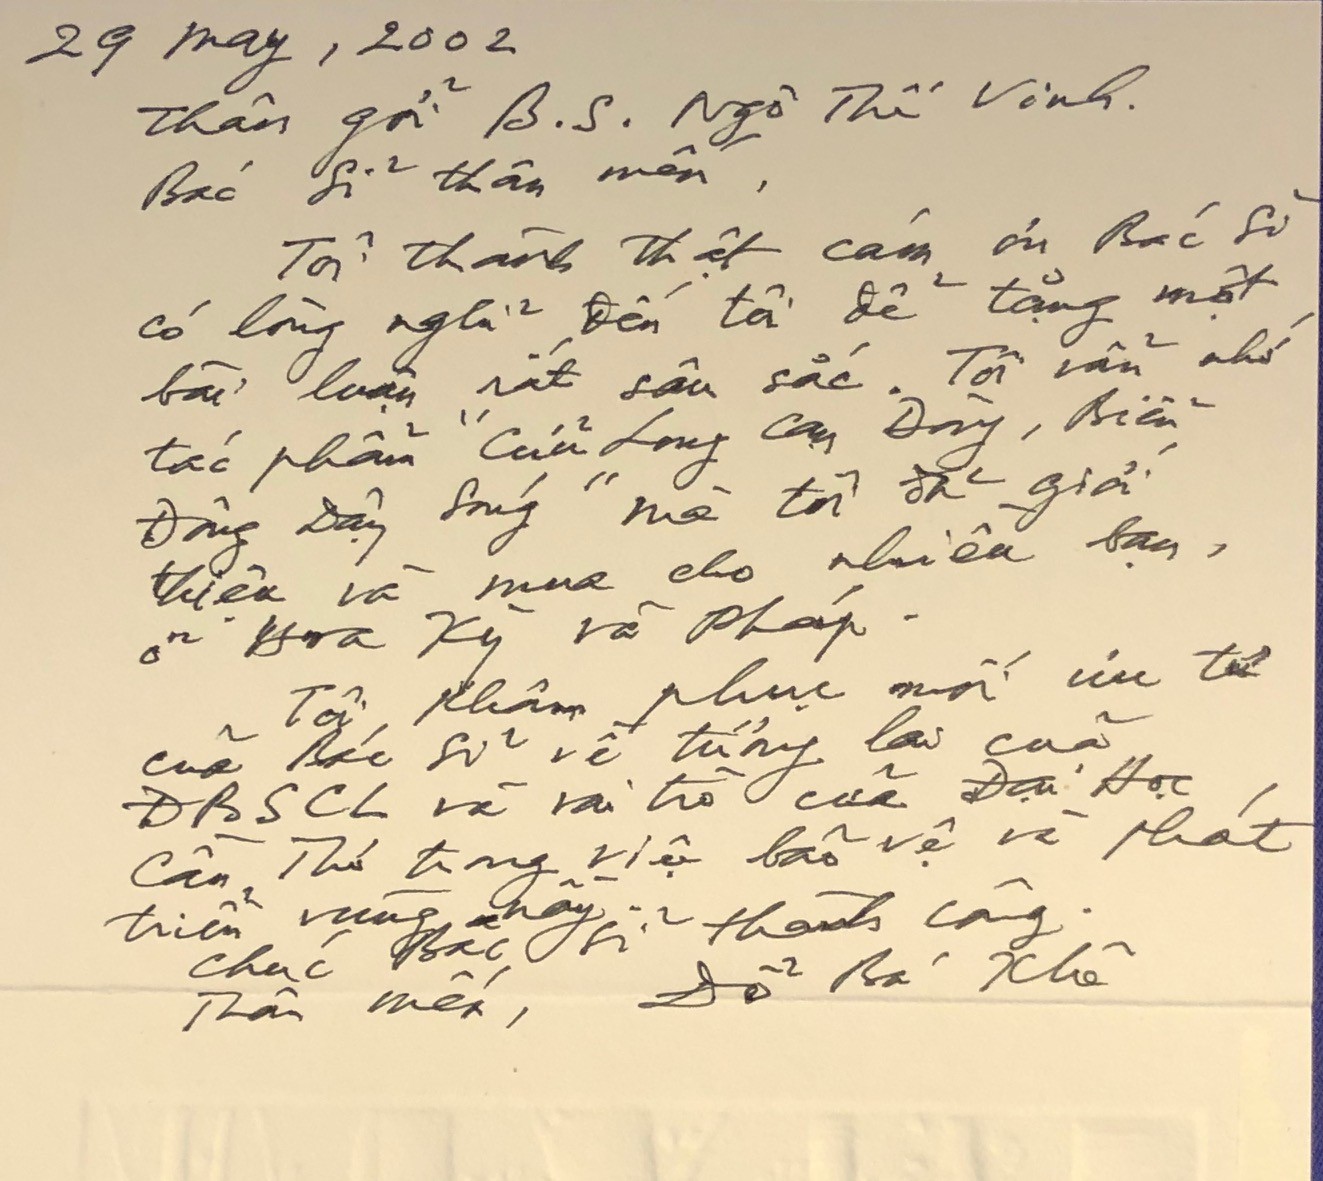 29 May, 2002
Thân gởi B.S. Ngô Thế Vinh.
Bác Sĩ thân mến,
Tôi thành thật cám ơn Bác Sĩ
có lòng nghĩ đến tôi để tặng một
bài luận rất sâu sắc. Tôi vẫn nhớ
tác phẩm "Cửu Long cạn Dòng, Biển
Đông Dậy Sóng" mà tôi đã giới
thiệu và mua cho nhiều bạn,
ở Hoa Kỳ và Pháp.
Tôi khâm phục mối ưu tư
của Bác Sĩ về tương lai của
ĐBSCL và vai trò của Đại Học
Cần Thơ trong việc bảo vệ và phát
triển vùng nầy.
Chúc Bác Sĩ thành công.
Thân mến, Đỗ Bá Khê